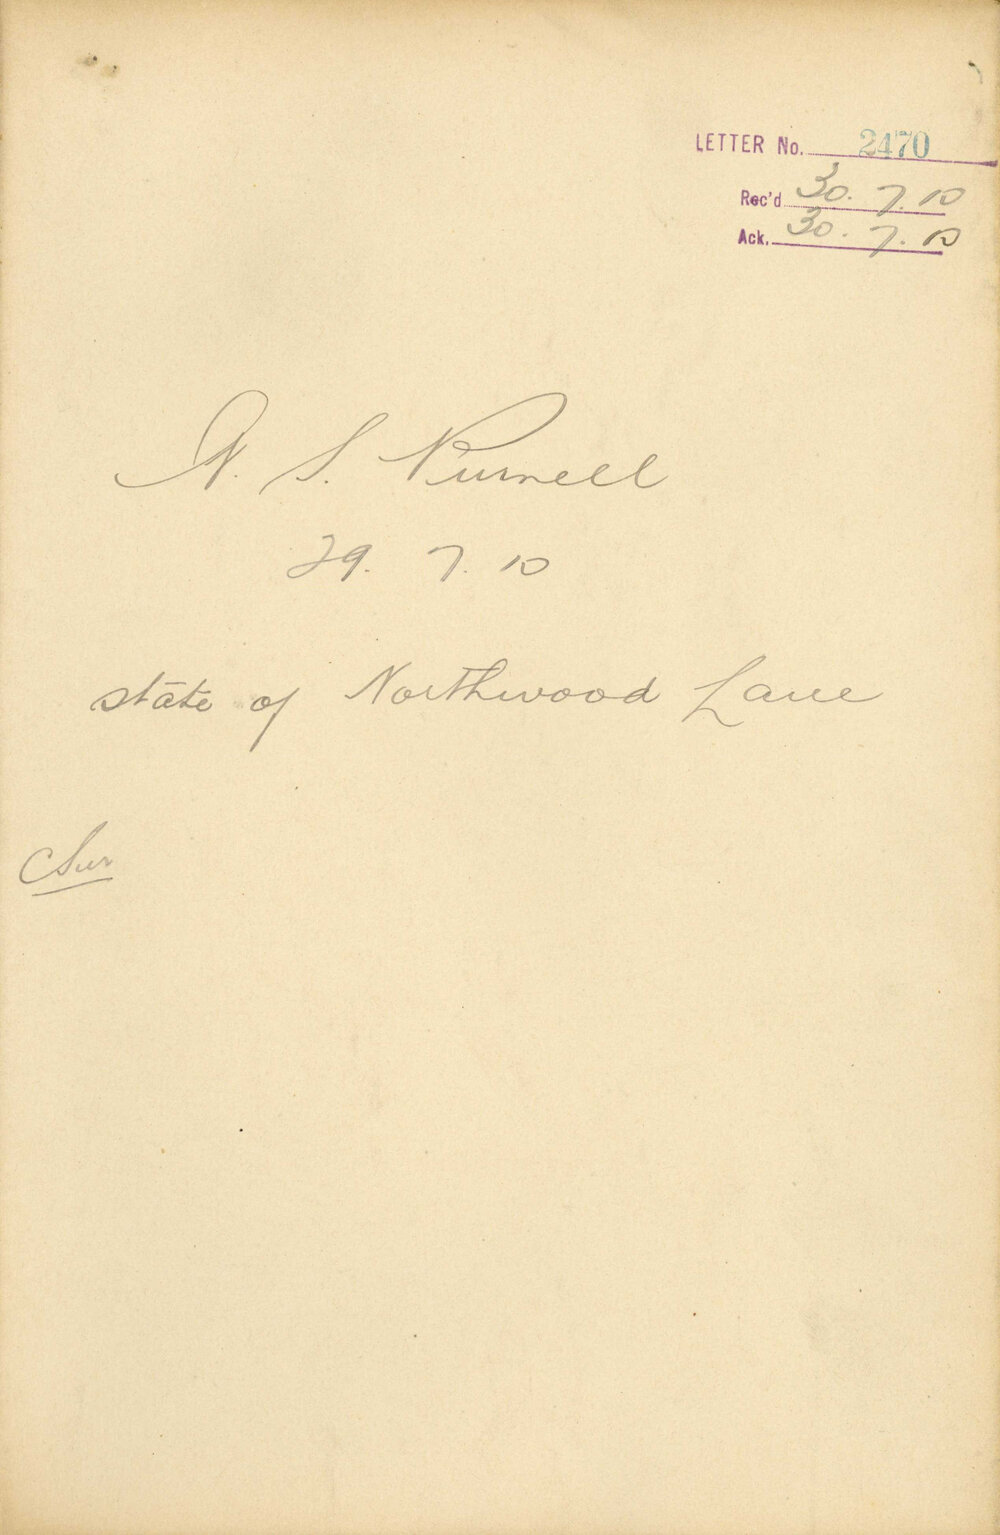 LETTER No. 2470
Rec'd 30. 7. 10
Ack. 30. 7. 10
N. S. Purnell
29. 7. 10
state of Northwood Lane
Sur